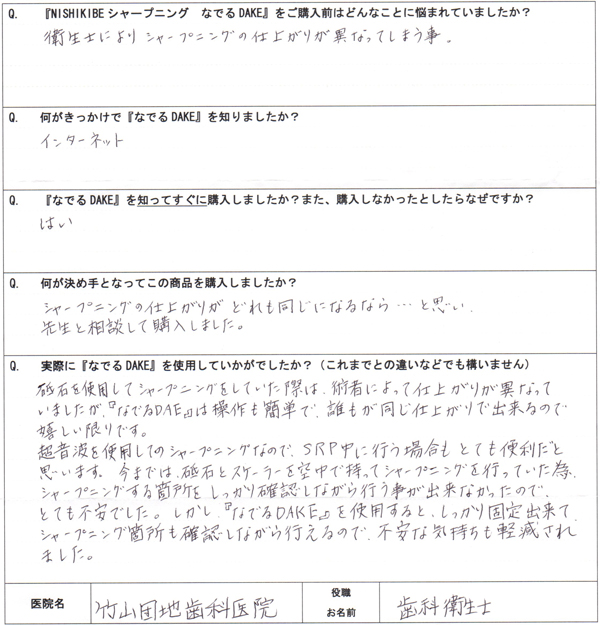 Q. 『NISHIKIBEシャープニング なでるDAKE』をご購入前はどんなことに悩まれていましたか？
衛生士によりシャープニングの仕上がりが異なってしまう事。
Q. 何がきっかけで『なでるDAKE』を知りましたか？
インターネット
Q. 『なでるDAKE』を知ってすぐに購入しましたか？また、購入しなかったとしたらなぜですか？
はい
Q. 何が決め手となってこの商品を購入しましたか？
シャープニングの仕上がりがどれも同じになるなら…と思い、
先生と相談して購入しました。
Q. 実際に『なでるDAKE』を使用していかがでしたか？（これまでとの違いなどでも構いません）
砥石を使用してシャープニングをしていた際は、術者によって仕上がりが異なって
いましたが、『なでるDAE』は操作も簡単で、誰もが同じ仕上がりで出来るので
嬉しい限りです。
超音波を使用してのシャープニングなので、SRP中に行う場合もとても便利だと
思います。今までは、砥石とスケーラーを空中で持ってシャープニングを行っていた為、
シャープニングする箇所をしっかり確認しながら行う事が出来なかったので、
とても不安でした。しかし、『なでるDAKE』を使用すると、しっかり固定出来て、
シャープニング箇所も確認しながら行えるので、不安な気持ちも軽減され
ました。
医院名 竹山団地歯科医院 役職 歯科衛生士
お名前